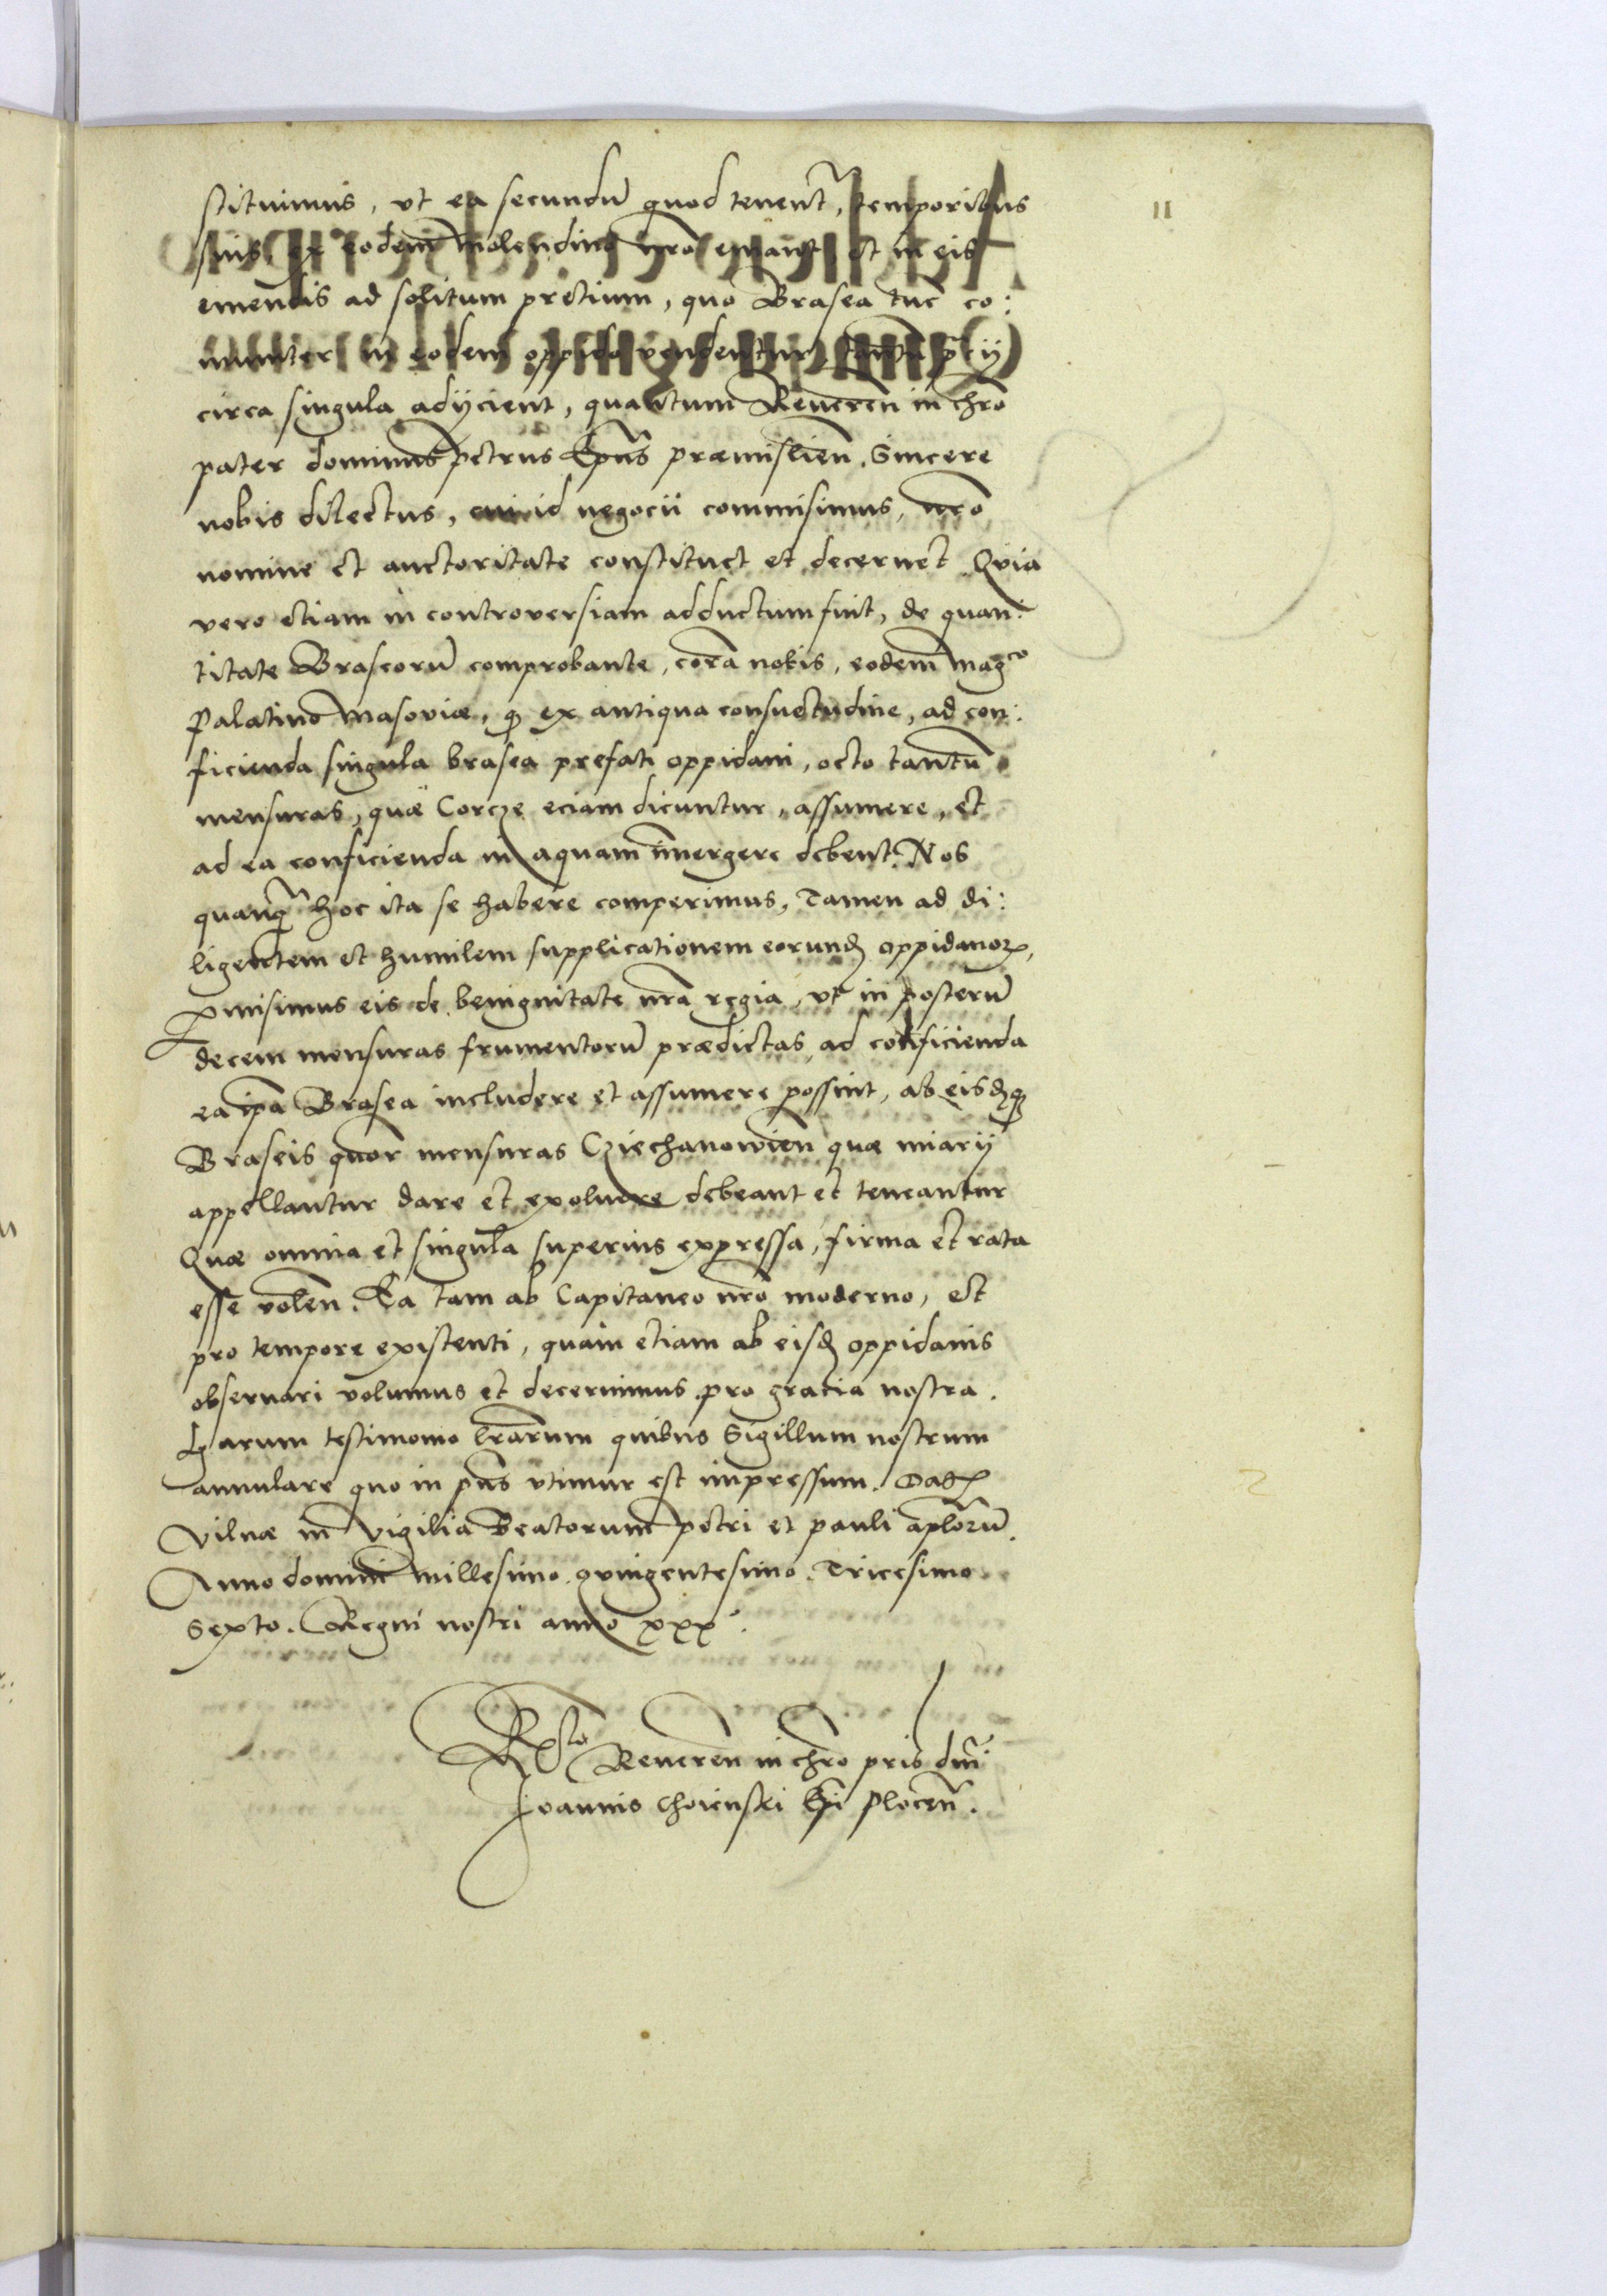 11
stituimus, vt ea secundū quod tenent̄, temporibus
suis, ex eodem molendino nrō emant, et in eis
emendis ad solitum pretium, quo Brasea tūc co:
muniter in eodem oppido vendentur, tantū p̄cij
circa singula adijcient, quantum Reueren̄ in chrō
pater dominus petrus Ep̄us præmislien̄. Sincere
nobis dilectus, cui id negocii commisimus, nrō
nomine et auctoritate constituet et decernet Quia
vero etiam in controversiam adductum fuit, de quan:
titate Braseorū comprobante, corā nobis, eodem mag^co
Palatino Masoviæ, q̄ ex antiqua consuetudine, ad con:
ficienda singula brasea prefati oppidani, octo tantū
mensuras, quæ Corcze eciam dicuntur, assumere, et
ad ea conficienda in aquam īmergere debent. Nos
quanq̄ hoc ita se habere comperimus, Tamen ad di:
ligentem et humilem supplicationem eorund oppidanoꝝ,
pmisimus eis de benignitate nrā regia, vt in posterū
decem mensuras frumentorū prædictas, ad conficienda
ea ip̄a Brasea includere et assumere possint, ab eisdꝗ
Braseis quor̄ mensuras Cziechanowien̄ quæ miarij
appellantur dare et exoluere debeant et teneantur
Quæ omnia et singula superius expressa, firma et rata
esse volen̄. Ea tam ab Capitaneo nrō moderno, et
pro tempore existenti, quam etiam ab eisd oppidanis
obseruari volumus et decernimus pro gratia nostra.
Harum testimonio lrārum quibus Sigillum nostrum
annulare quo in pn̄s vtimur est impressum. Datꝭ
Vilnæ in vigilia Beatorum petri et pauli aplōrū.
Anno domini millesimo quingentesimo Tricesimo
Sexto. Regni nostri anno xxx.
R^lo Reueren̄ in chrō pris dn̄i
Joannis Choienski Ep̄i Plocen̄.